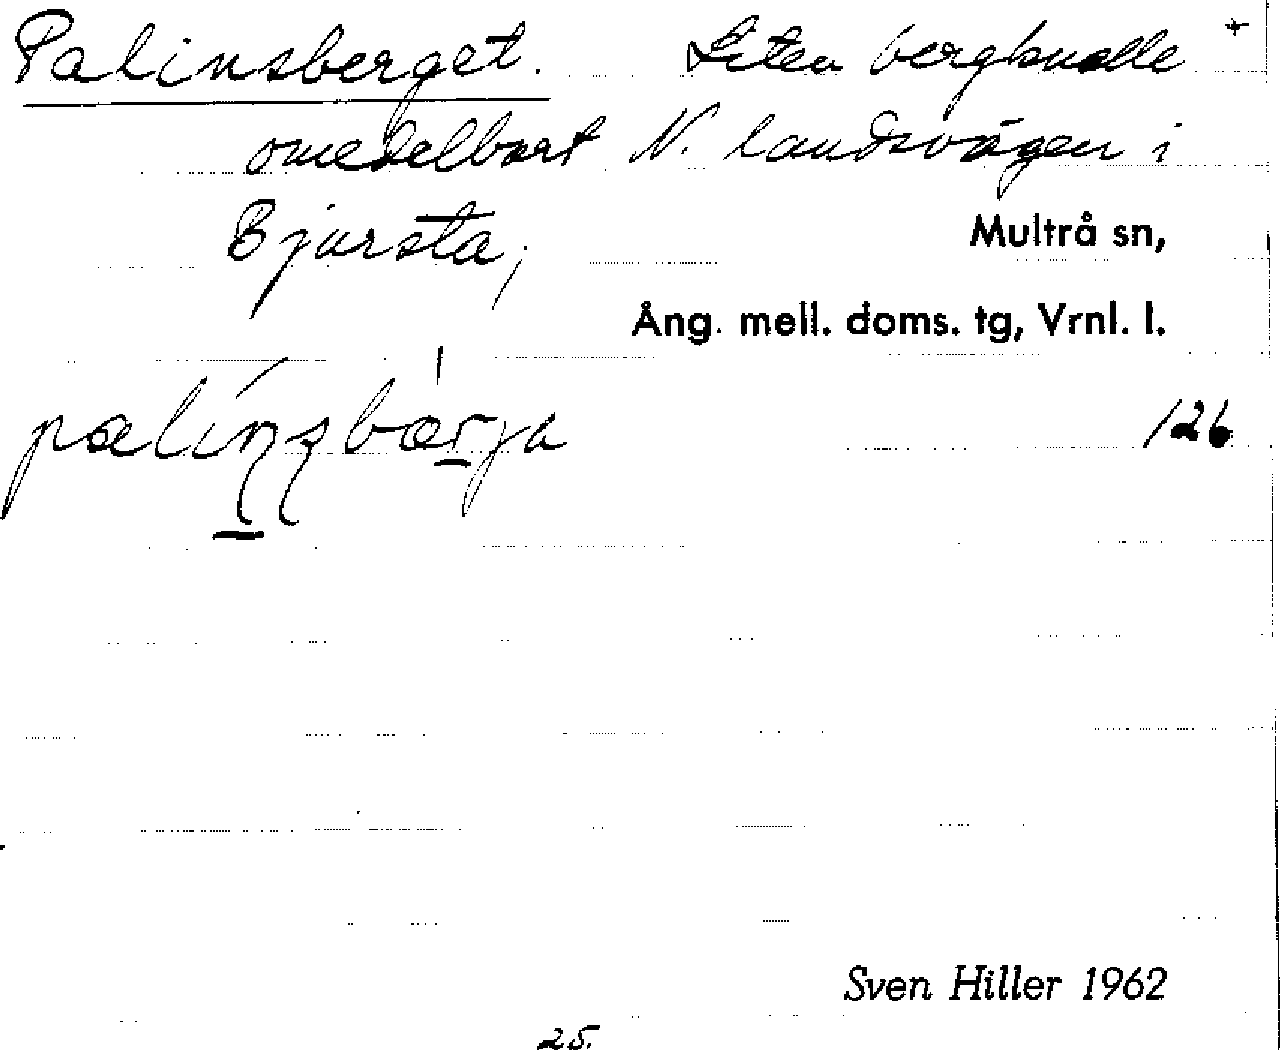 Palinsberget. Liten bergknalle +
omedelbart N. landsvägen i
Bjursta,
Multrå sn,
Ång. mell. doms. tg, Vrnl. l.
126
Sven Hiller 1962
25.